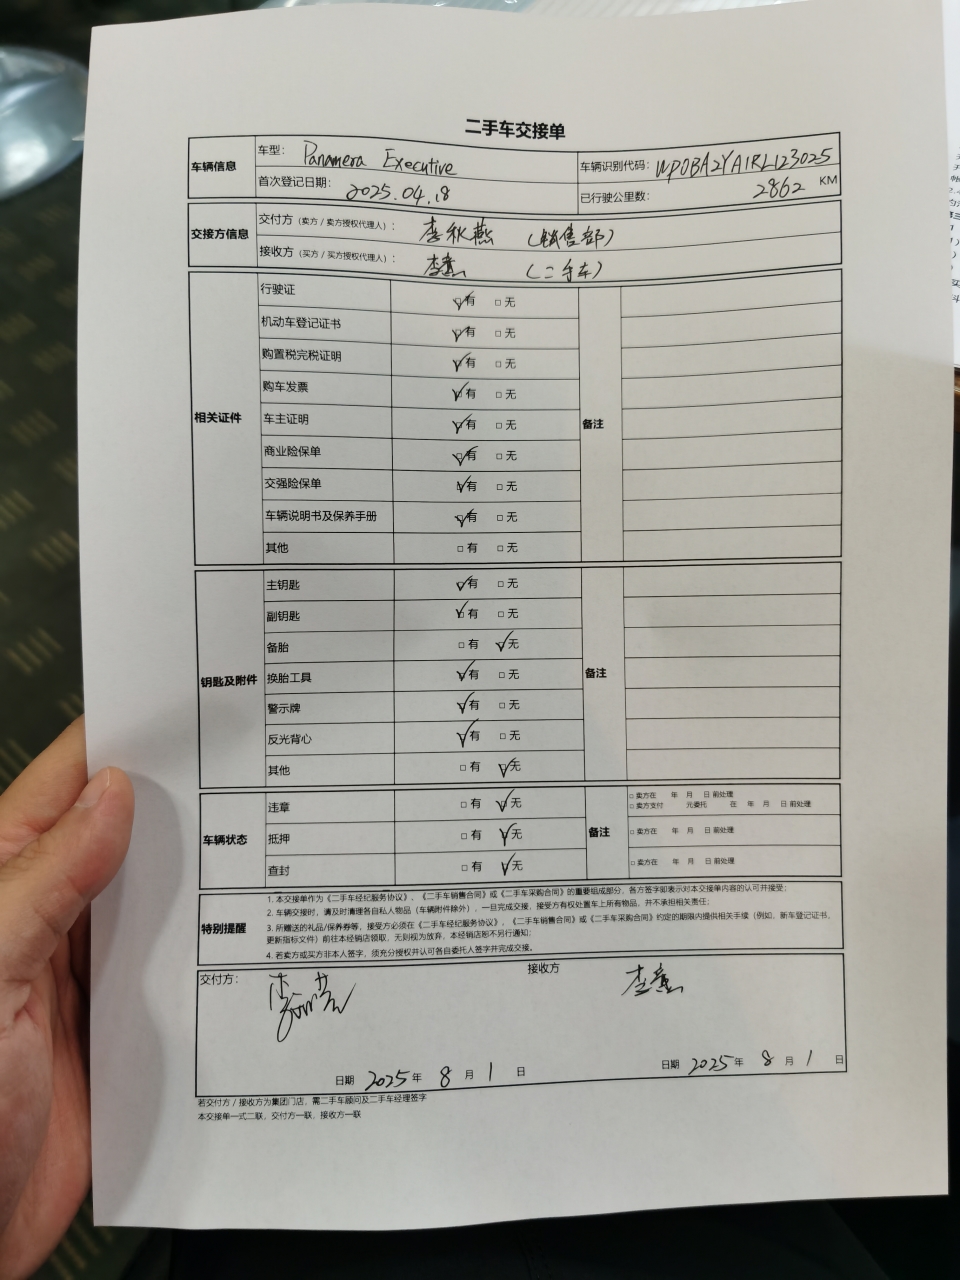 二手车交接单
车辆信息
车型： Panamera Executive
车辆识别代码： WP0BA2YA1RL123025
首次登记日期： 2025.04.18
已行驶公里数： 2862 KM
交接方信息
交付方（卖方 / 卖方授权代理人）： 李秋燕 （销售部）
接收方（买方 / 买方授权代理人）： 李熹 （二手车）
相关证件
行驶证 ☑有 □无
机动车登记证书 ☑有 □无
购置税完税证明 ☑有 □无
购车发票 ☑有 □无
车主证明 ☑有 □无
备注
商业险保单 ☑有 □无
交强险保单 ☑有 □无
车辆说明书及保养手册 ☑有 □无
其他 □有 □无
钥匙及附件
主钥匙 ☑有 □无
副钥匙 ☑有 □无
备胎 □有 ☑无
换胎工具 ☑有 □无
备注
警示牌 ☑有 □无
反光背心 ☑有 □无
其他 □有 ☑无
车辆状态
违章 □有 ☑无
抵押 □有 ☑无
查封 □有 ☑无
备注
□ 卖方在 年 月 日 前处理
□ 卖方支付 元委托 在 年 月 日 前处理
□ 卖方在 年 月 日 前处理
□ 卖方在 年 月 日 前处理
特别提醒
1. 本交接单作为《二手车经纪服务协议》、《二手车销售合同》或《二手车采购合同》的重要组成部分，各方签字即表示对本交接单内容的认可并接受；
2. 车辆交接时，请及时清理各自私人物品（车辆附件除外），一旦完成交接，接受方有权处置车上所有物品，并不承担相关责任；
3. 所赠送的礼品/保养券等，接受方必须在《二手车经纪服务协议》、《二手车销售合同》或《二手车采购合同》约定的期限内提供相关手续（例如，新车登记证书，
更新指标文件）前往本经销店领取，无则视为放弃，本经销店恕不另行通知；
4. 若卖方或买方非本人签字，须充分授权并认可各自委托人签字并完成交接。
交付方：
接收方 李熹
日期 2025 年 8 月 1 日
日期 2025 年 8 月 1 日
若交付方 / 接收方为集团门店，需二手车顾问及二手车经理签字
本交接单一式二联，交付方一联，接收方一联